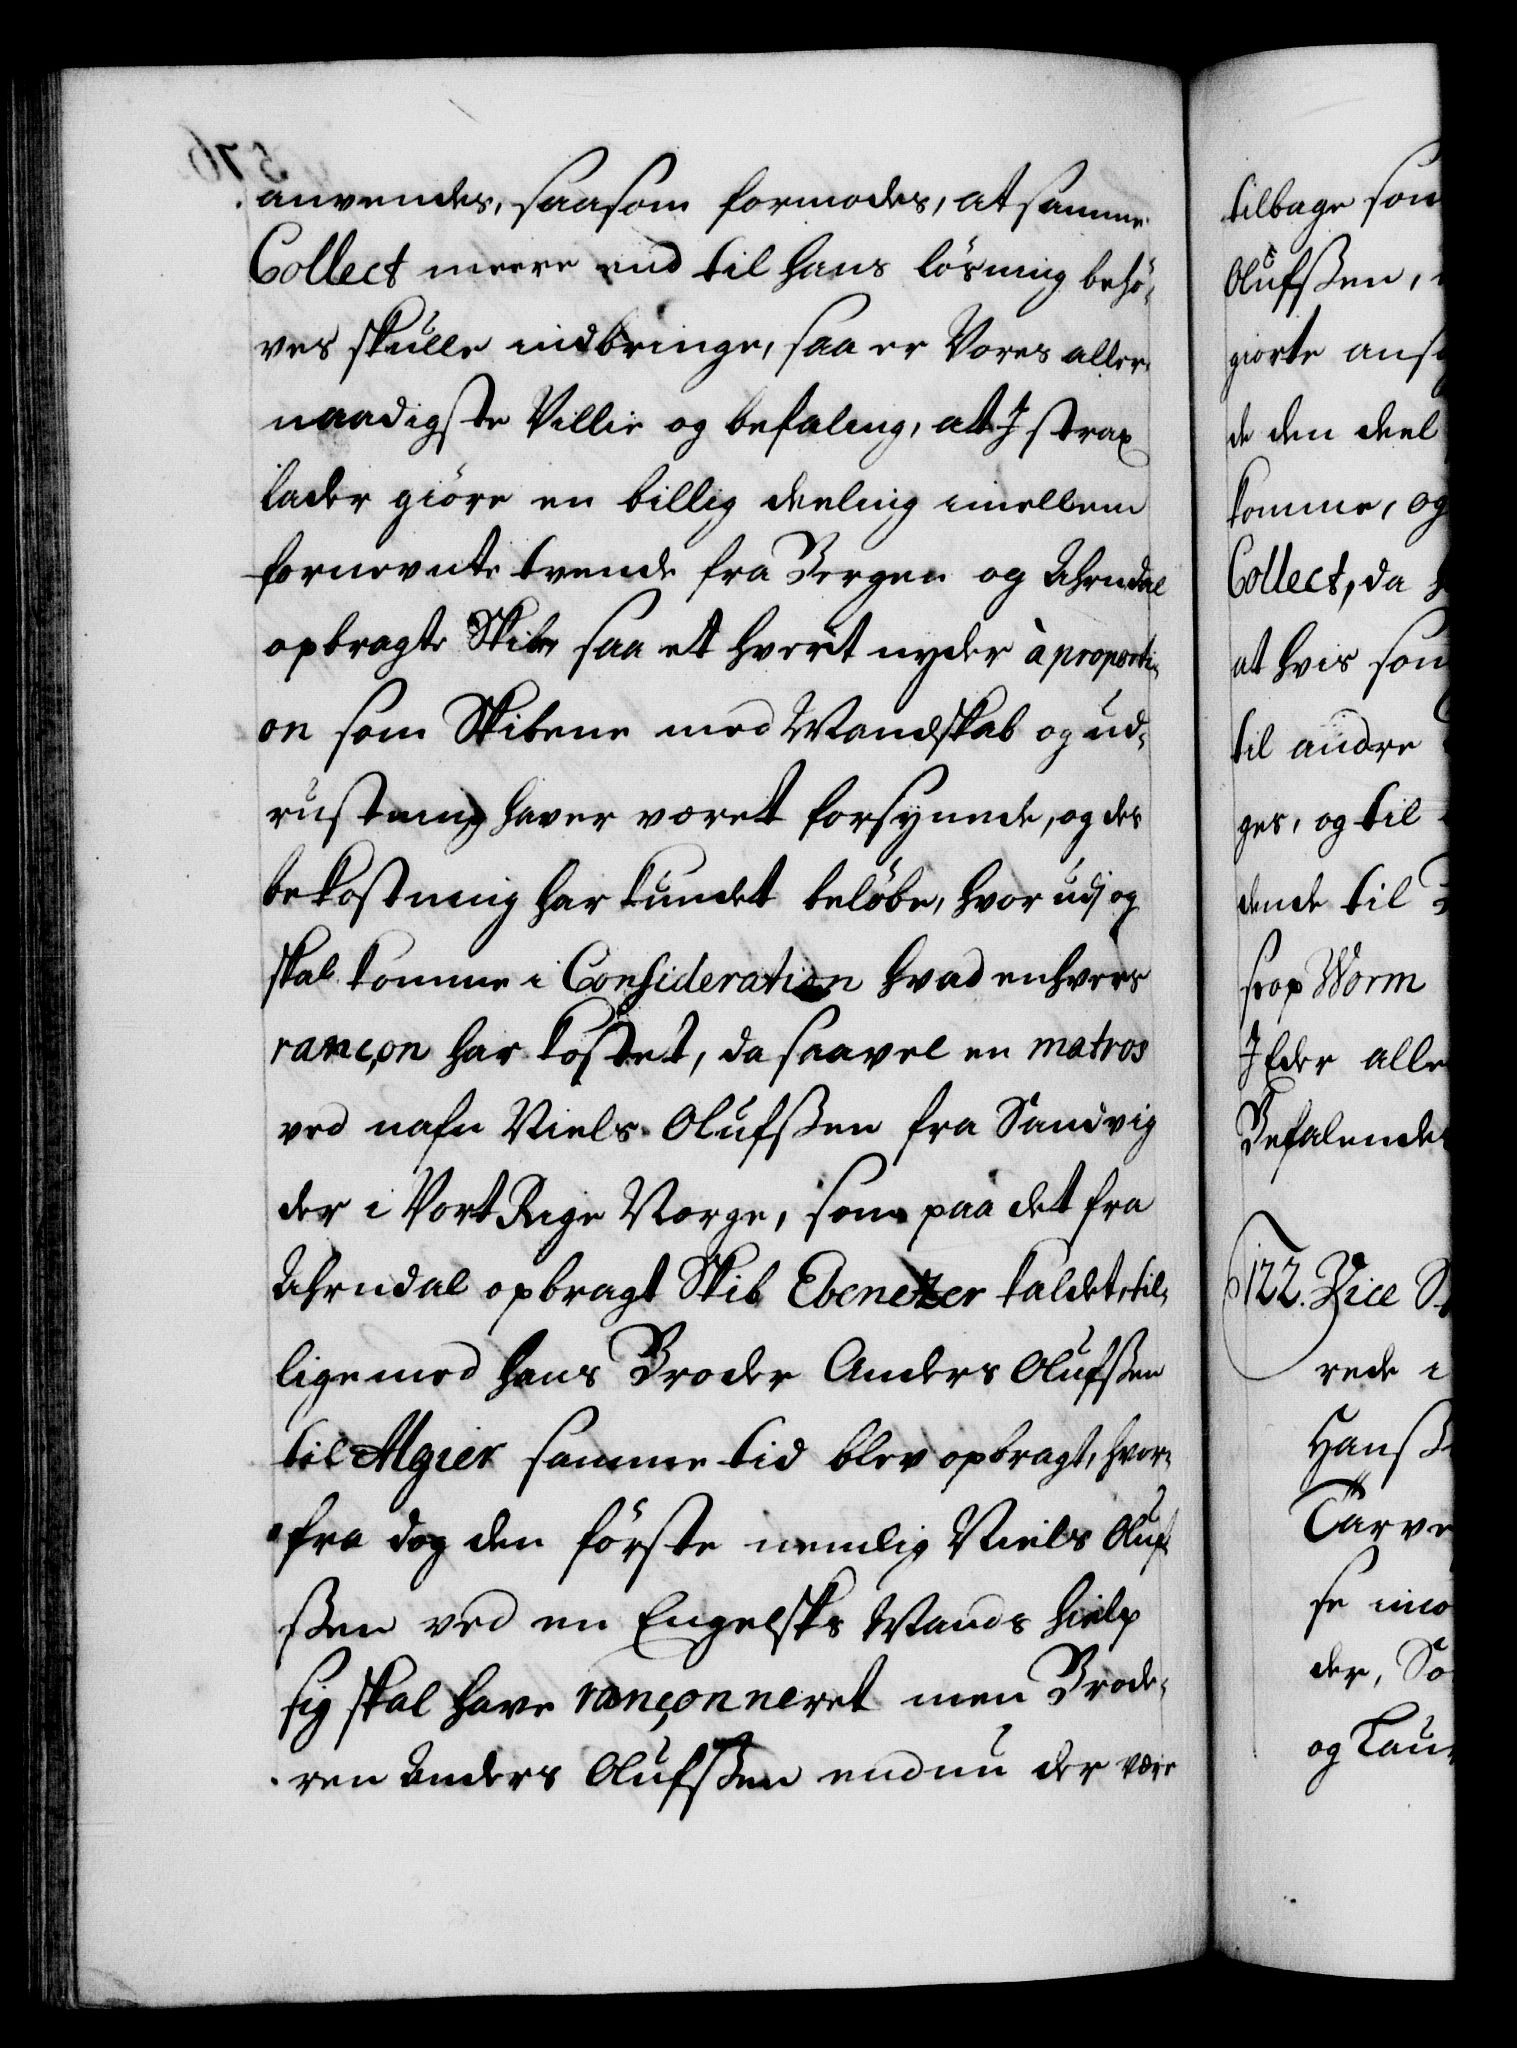 anvendes, saasom formodes, at samme
Collect meere end til hans lösning behö-
ves skulle indbringe, saa er Vores aller-
naadigste Villie og befaling, at I strax
lader giöre en billig deeling imellem
fornevnte tvende fra Bergen og Ahrendal
opbragte Skibe, saa et hvert nyder à proporti-
on som Skibene med Mandskab og ud-
rustning haver været forsynede, og des
bekostning har kundet belöbe, hvor udj og
skal komme i Consideration hvad enhvers
rançon har kostet, da saavel en matros
ved nafn Niels Olufssen fra Sandvig
der i Vort Rige Norge, som paa det fra
Ahrndal opbragt Skib Ebenetzer kaldet, til-
lige med hans Broder Anders Olufssen
til Algier samme tid blev opbragt, hvor-
fra dog den förste nemlig Niels Oluf-
ssen ved en Engelsks Mands hielp
sig skal have rançonneret men Brode-
ren Anders Olufssen endnu der være
tilbage som
Olufssen,
giorte
de den deel
komme, og
Collect, da
at hvis som
til andre
ges, og til
dende til
scop Worm
I Eder alle
Befalendes
122. Vice
rede i
Hanss
der,